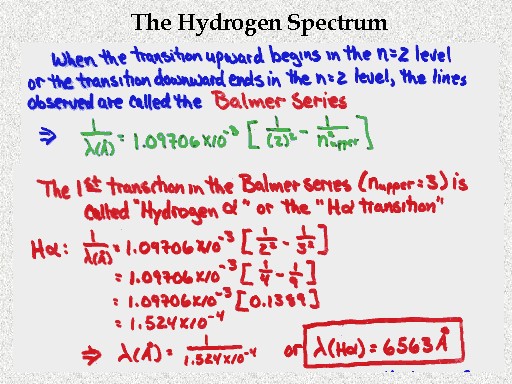 The Hydrogen Spectrum
When the transition upward begins in the n=2 level
or the transition downward ends in the n=2 level, the lines
observed are called the Balmer Series
⇒ 1/λ(Å) = 1.09706x10⁻³ [ 1/(2)² - 1/n²upper ]
The 1st transition in the Balmer series (n upper = 3) is
called "Hydrogen α" or the "Hα transition"
Hα: 1/λ(Å) = 1.09706x10⁻³ [ 1/2² - 1/3² ]
= 1.09706x10⁻³ [ 1/4 - 1/9 ]
= 1.09706x10⁻³ [0.1389]
= 1.524x10⁻⁴
⇒ λ(Å) = 1/1.524x10⁻⁴ or λ(Hα) = 6563 Å